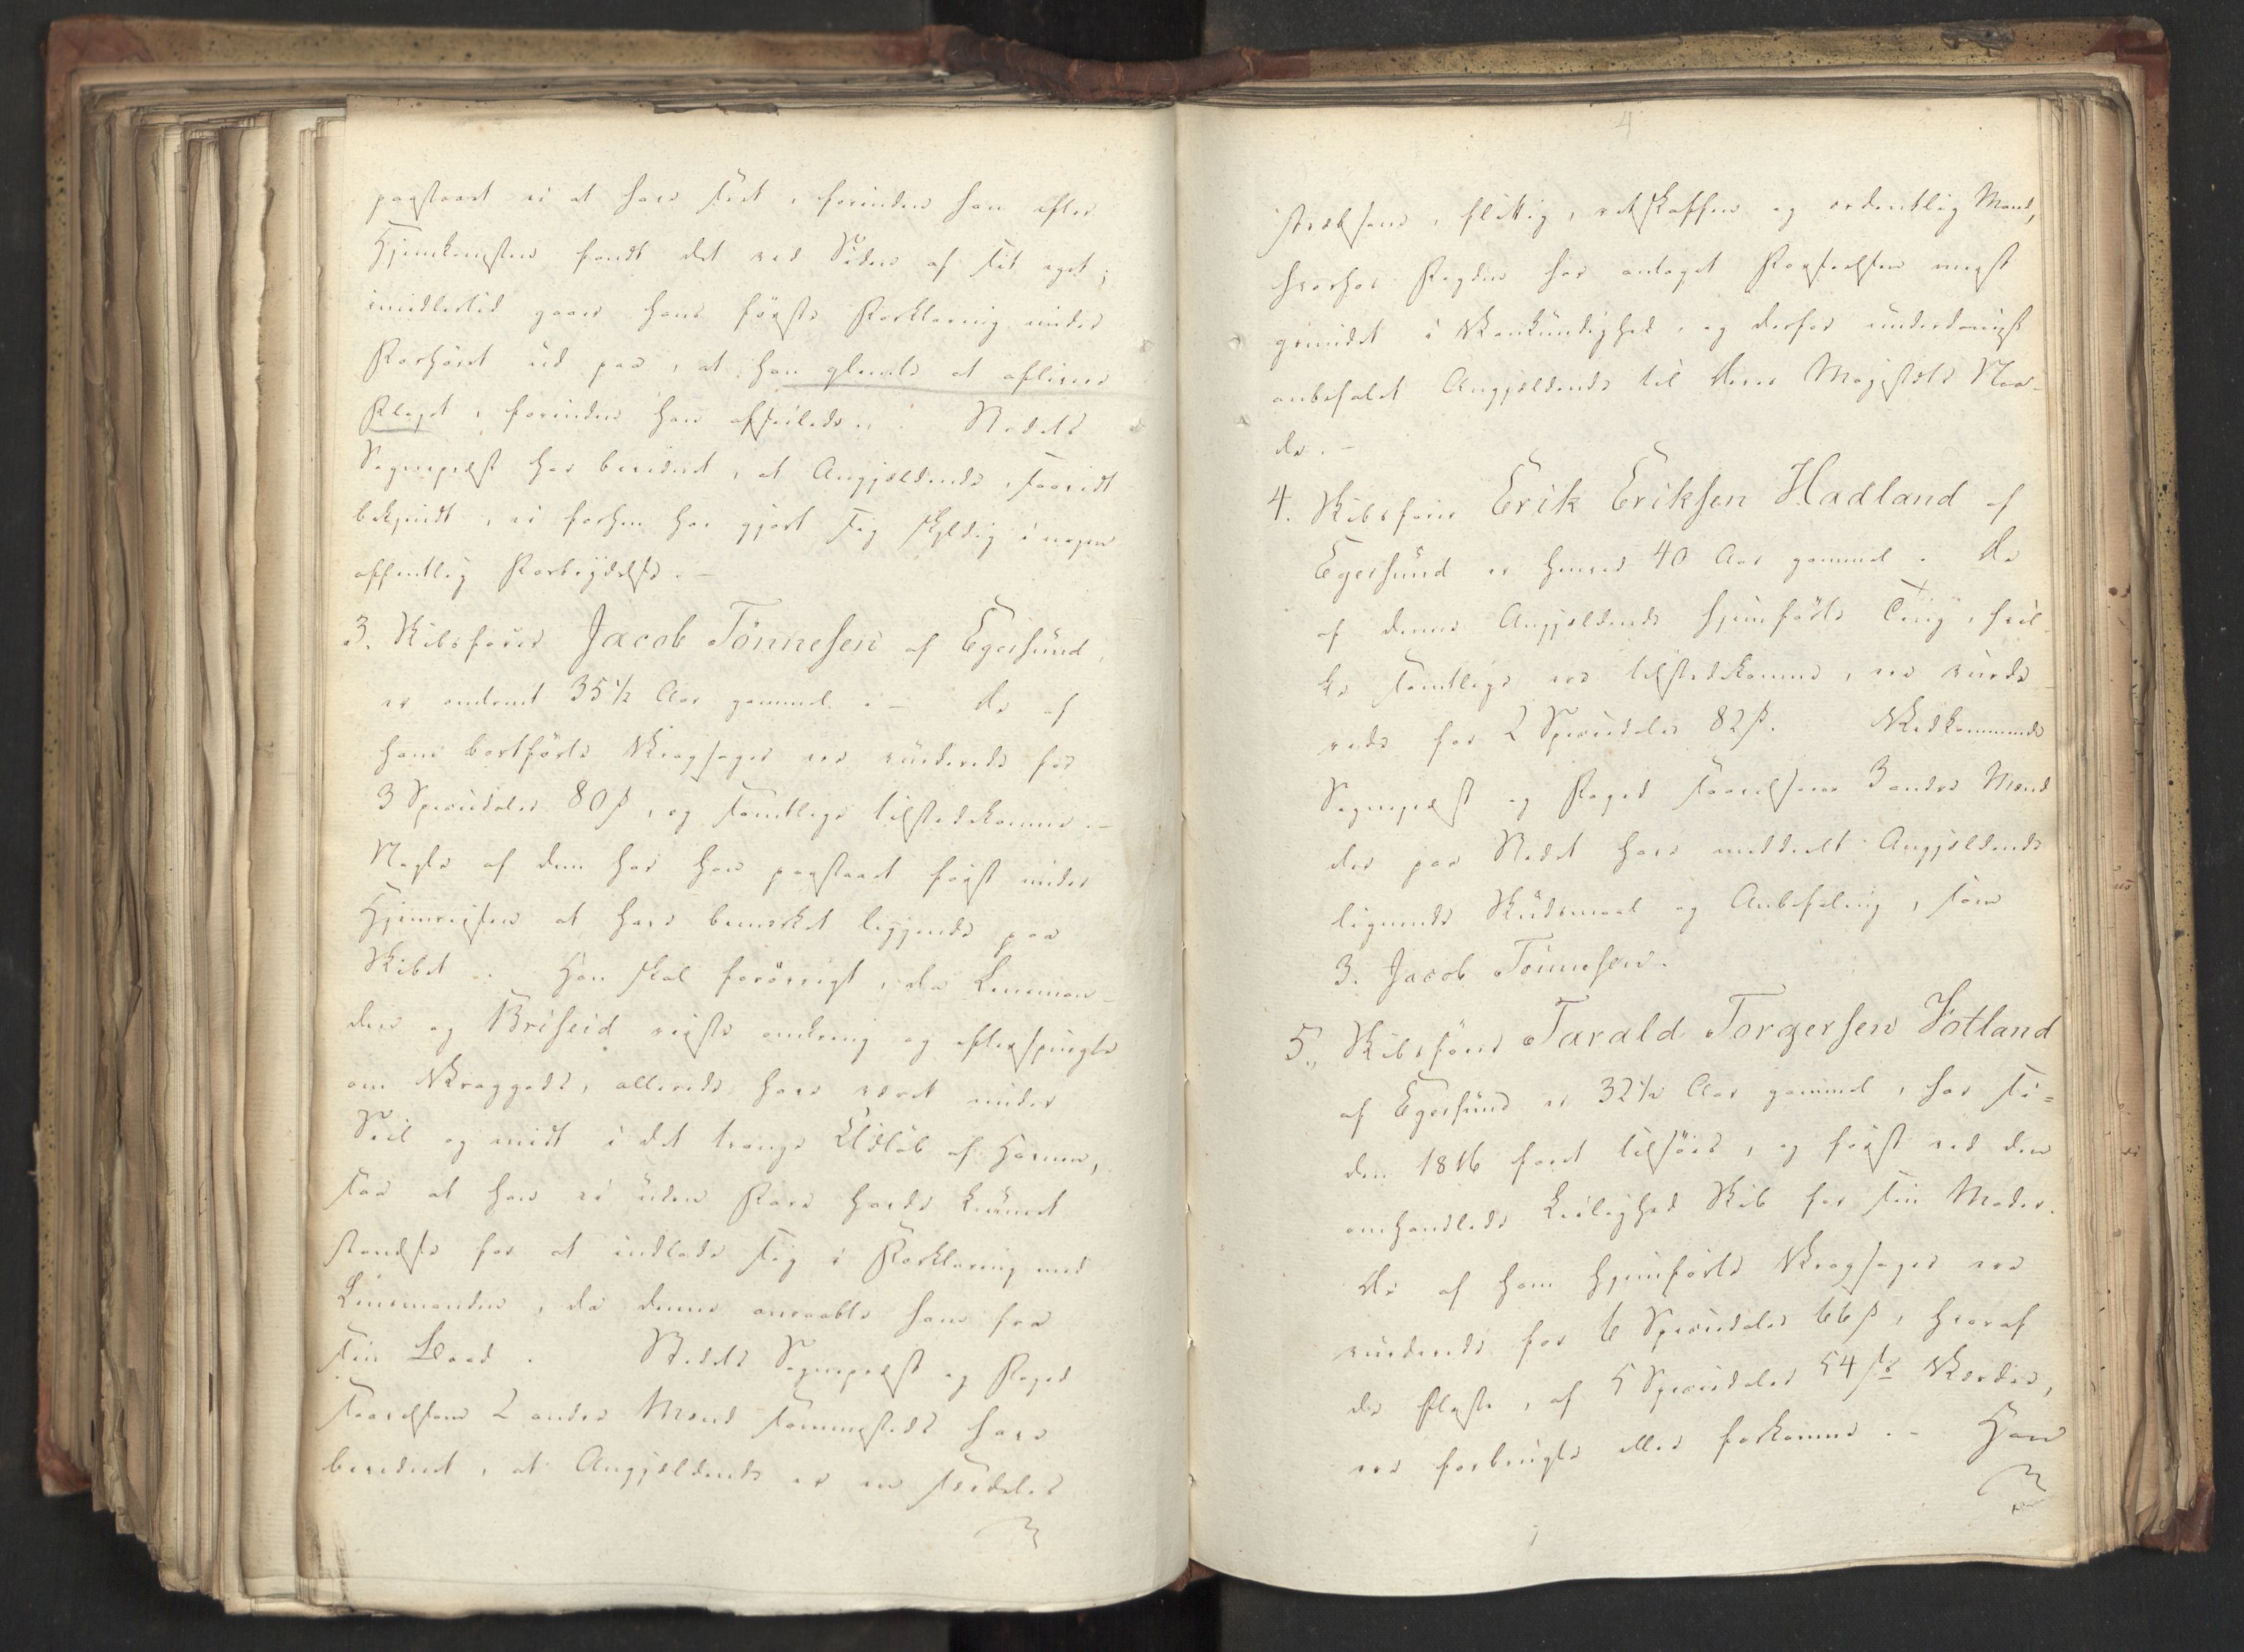 paastaaet ei at have seet, forinden han efter
Hjemkomsten fandt det ved Siden af sit eget;
imidlertid gaaer hans første Forklaring under
Forhøret ud paa, at han glemte at aflevere
Flaget, forinden han afseilede. Stedets
Sognepræst har bevidnet, at Angjældende, saavidt
bekjendt, ei forhen har gjort sig skyldig i nogen
offentlig Forbrydelse. –
3. Skibsfører Jacob Tönnesen af Egersund,
er omtrent 35 1/2 Aar gammel. – De af
ham bortførte Vragsager ere vurderede for
3 Speciedaler 80 ß, og samtlige tilstedekomne. –
Nogle af dem har han paastaaet først under
Hjemreisen at have bemærket liggende paa
Skibet. Han skal forøvrigt, da Lensman-
den og Briseid reiste omkring og efterspurgte
om Vraggods, allerede have været under
Seil og midt i det trange Udløb af Havnen,
saa at han ei uden Fare havde kunnet
standse for at indlade sig i Forklaring med
Lensmanden, da denne anraabte ham fra
sin Baad. Stedets Sognepræst og Foged
saavelsom 2 andre Mænd sammesteds have
bevidnet, at Angjældende er en særdeles
4
stræbsom, flittig, retskaffen og ordentlig Mand,
hvorhos Fogden har antaget Forseelsen meest
grundet i Vankundighed, og derfor underdanigst
anbefalet Angjældende til Deres Majestæts Naa-
de. –
4. Skibsfører Erik Eriksen Hadland af
Egersund er henved 40 Aar gammel. De
af denne Angjældende hjemførte Ting, hvil-
ke samtlige ere tilstedekomne, ere vurde-
rede for 2 Speciedaler 82 ß. Vedkommende
Sognepræst og Foged saavelsom 3 andre Mænd
der paa Stedet have meddeelt Angjældende
lignende Skudsmaal og Anbefaling, som
3. Jacob Tönnesen.
5., Skibsfører Tarald Torgersen Jotland
af Egersund er 32 1/2 Aar gammel, har si=
den 1816 faret tilsøes, og først ved den
omhandlede Leilighed Skib for sin Moder.
De af ham hjemførte Vragsager ere
vurderede for 6 Speciedaler 66 ß, hvoraf
de fleste, af 5 Speciedaler 54 ß Værdie,
ere forbrugte eller forkomne. – Han